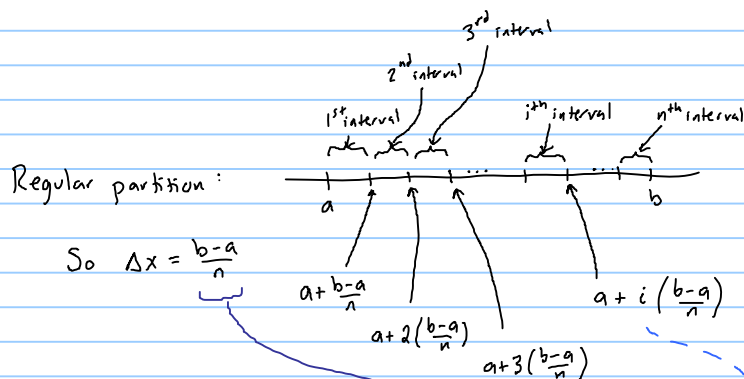 3rd interval
2nd interval
1st interval
ith interval
nth interval
Regular partition:
...
...
a
b
So Δx = (b-a)/n
a + (b-a)/n
a + i((b-a)/n)
a + 2((b-a)/n)
a + 3((b-a)/n)